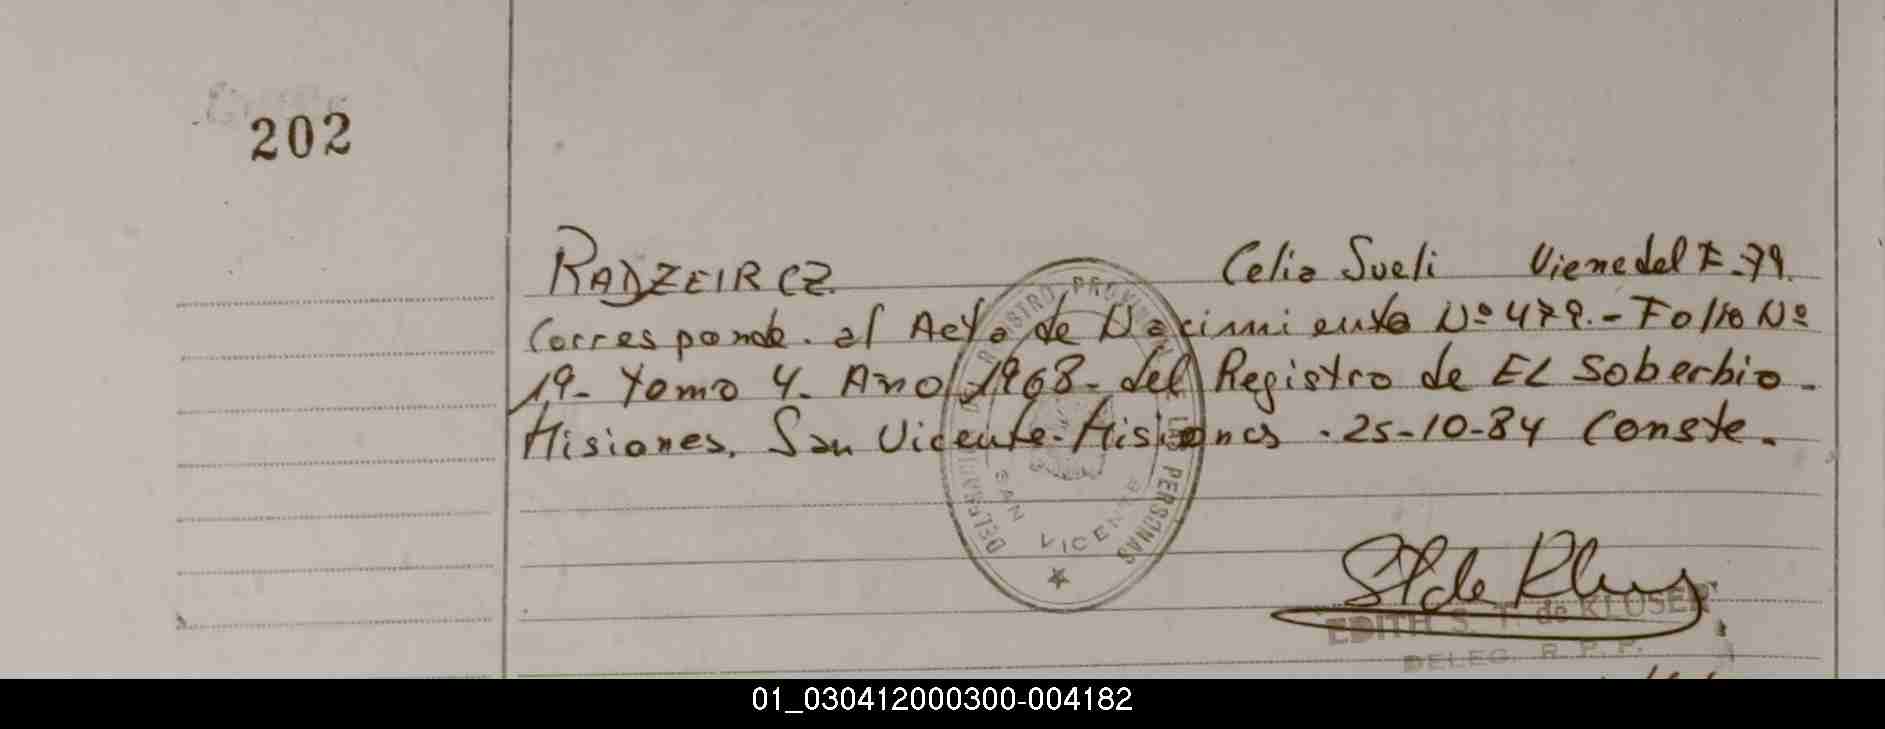 202
RADZEIRCZ. Celia Sueli Viene del F-79.
Corresponde. al Acta de Nacimiento Nº 479.- Folio Nº
19- Tomo 4. Año 1968- del Registro de EL Soberbio-
Misiones, San Vicente-Misiones. 25-10-84 Conste.
REGISTRO PROVINCIAL DE LAS PERSONAS
DELEGACION
SAN VICENTE
EDITH S. T. de KLUSER
DELEG. R. P. P.
01_030412000300-004182